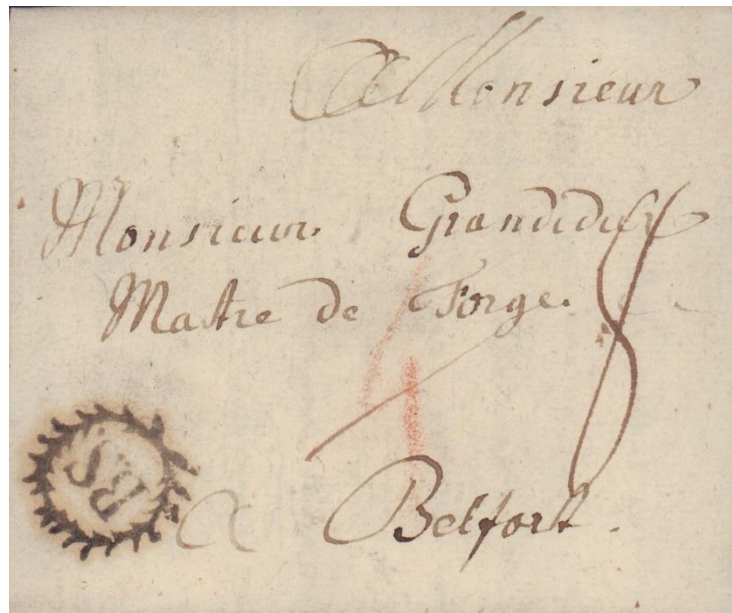 A Monsieur
Monsieur Grandidier
Maitre de Forge.
8
4
BS.
a Belfort.